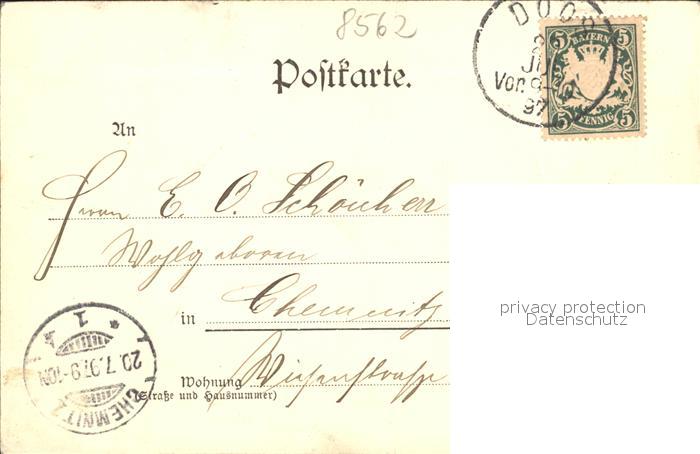 8562
Postkarte.
BAYERN
5 5
PFENNIG
5 5
Vor. 9-
97
An
Herrn E. O. Schönherr
Wohlgeboren
in Chemnitz
Wohnung Wiesenstrasse
(Straße und Hausnummer)
CHEMNITZ
20.7.97.9-10N
* 1
privacy protection
Datenschutz